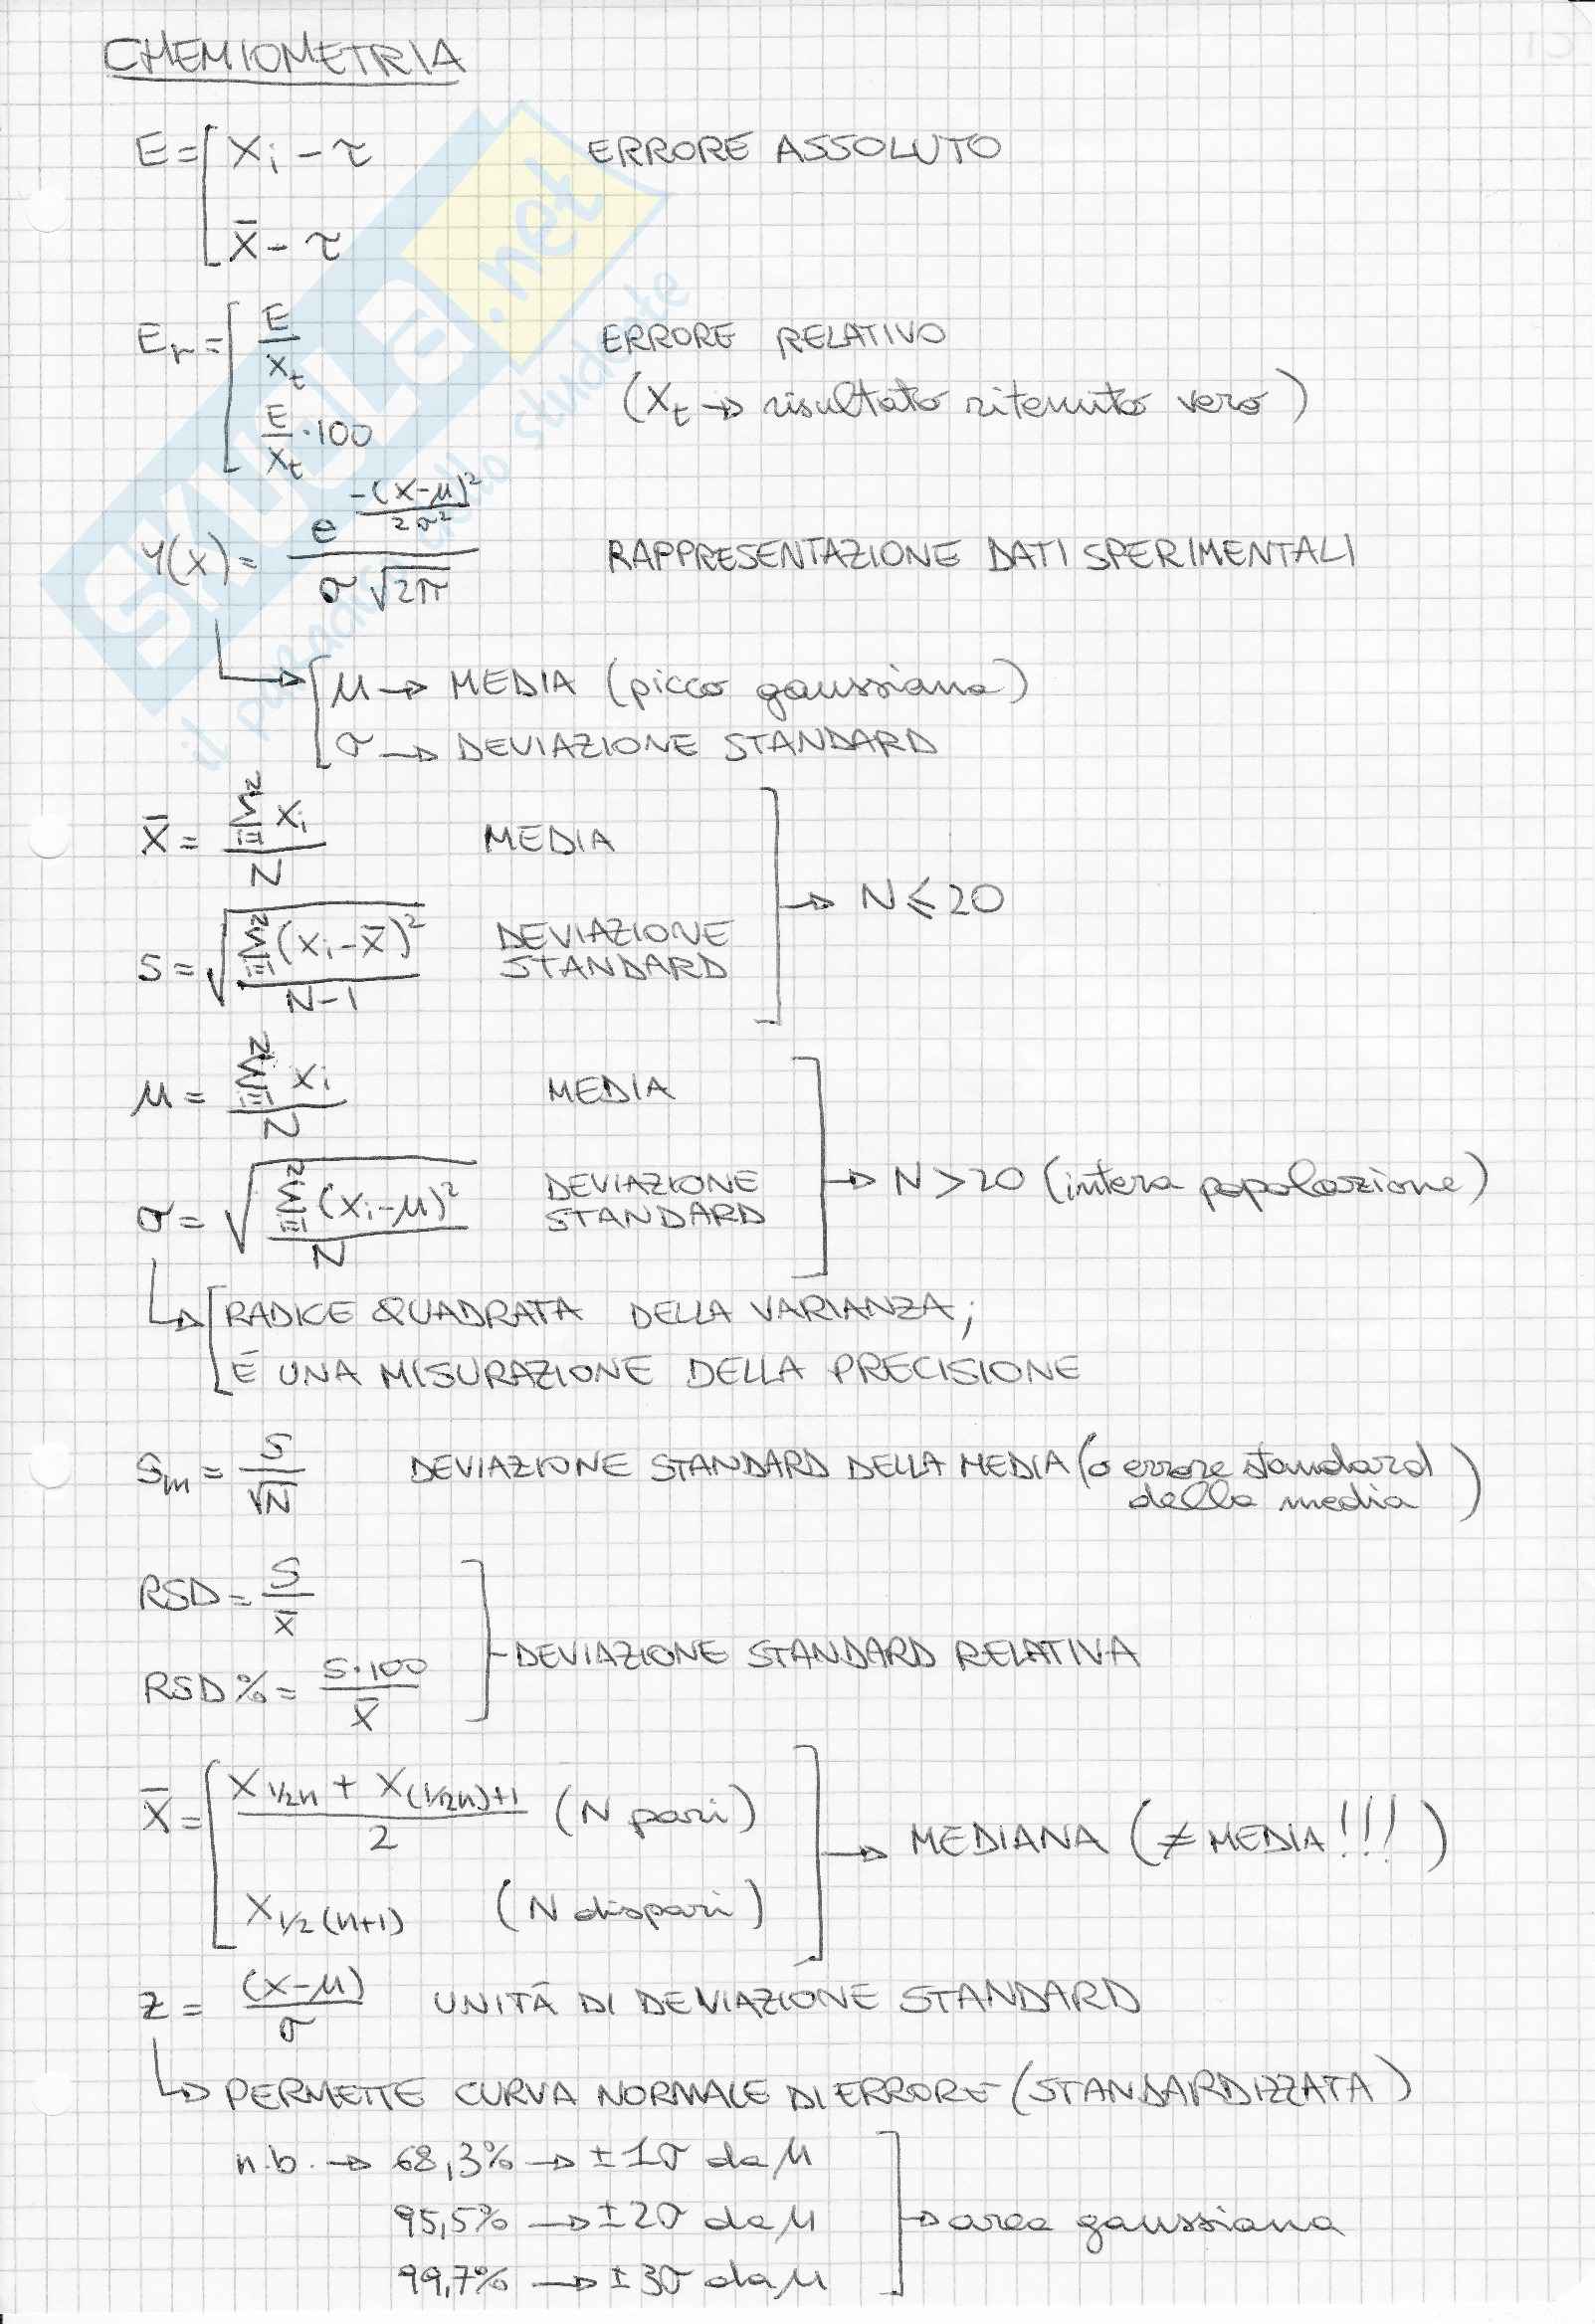 CHEMIOMETRIA
E = [ Xi - τ    ERRORE ASSOLUTO
X̄ - τ
Er = [ E/Xt    ERRORE RELATIVO
(Xt → risultato ritenuto vero)
E/Xt · 100
Y(X) = e^(-(X-μ)²/2σ²) / σ√2π    RAPPRESENTAZIONE DATI SPERIMENTALI
→ [ μ → MEDIA (picco gaussiana)
σ → DEVIAZIONE STANDARD
X̄ = Σ(i=1, N) Xi / N    MEDIA
] → N ≤ 20
S = √(Σ(i=1, N) (Xi - X̄)² / N-1)    DEVIAZIONE STANDARD
μ = Σ(i=1, N) Xi / N    MEDIA
] → N > 20 (intera popolazione)
σ = √(Σ(i=1, N) (Xi - μ)² / N)    DEVIAZIONE STANDARD
→ [ RADICE QUADRATA DELLA VARIANZA;
È UNA MISURAZIONE DELLA PRECISIONE
Sm = S/√N    DEVIAZIONE STANDARD DELLA MEDIA (o errore standard
della media)
RSD = S/X̄
] - DEVIAZIONE STANDARD RELATIVA
RSD% = S·100 / X̄
X̄ = [ X1/2n + X(1/2n)+1 / 2 (N pari)
] → MEDIANA (≠ MEDIA!!!)
X1/2(n+1) (N dispari)
z = (X-μ)/σ    UNITÀ DI DEVIAZIONE STANDARD
→ PERMETTE CURVA NORMALE DI ERRORE (STANDARDIZZATA)
n.b. → 68,3% → ±1σ da μ
95,5% → ±2σ da μ ] → area gaussiana
99,7% → ±3σ da μ
SKUOLA.net
il paradiso dello studente